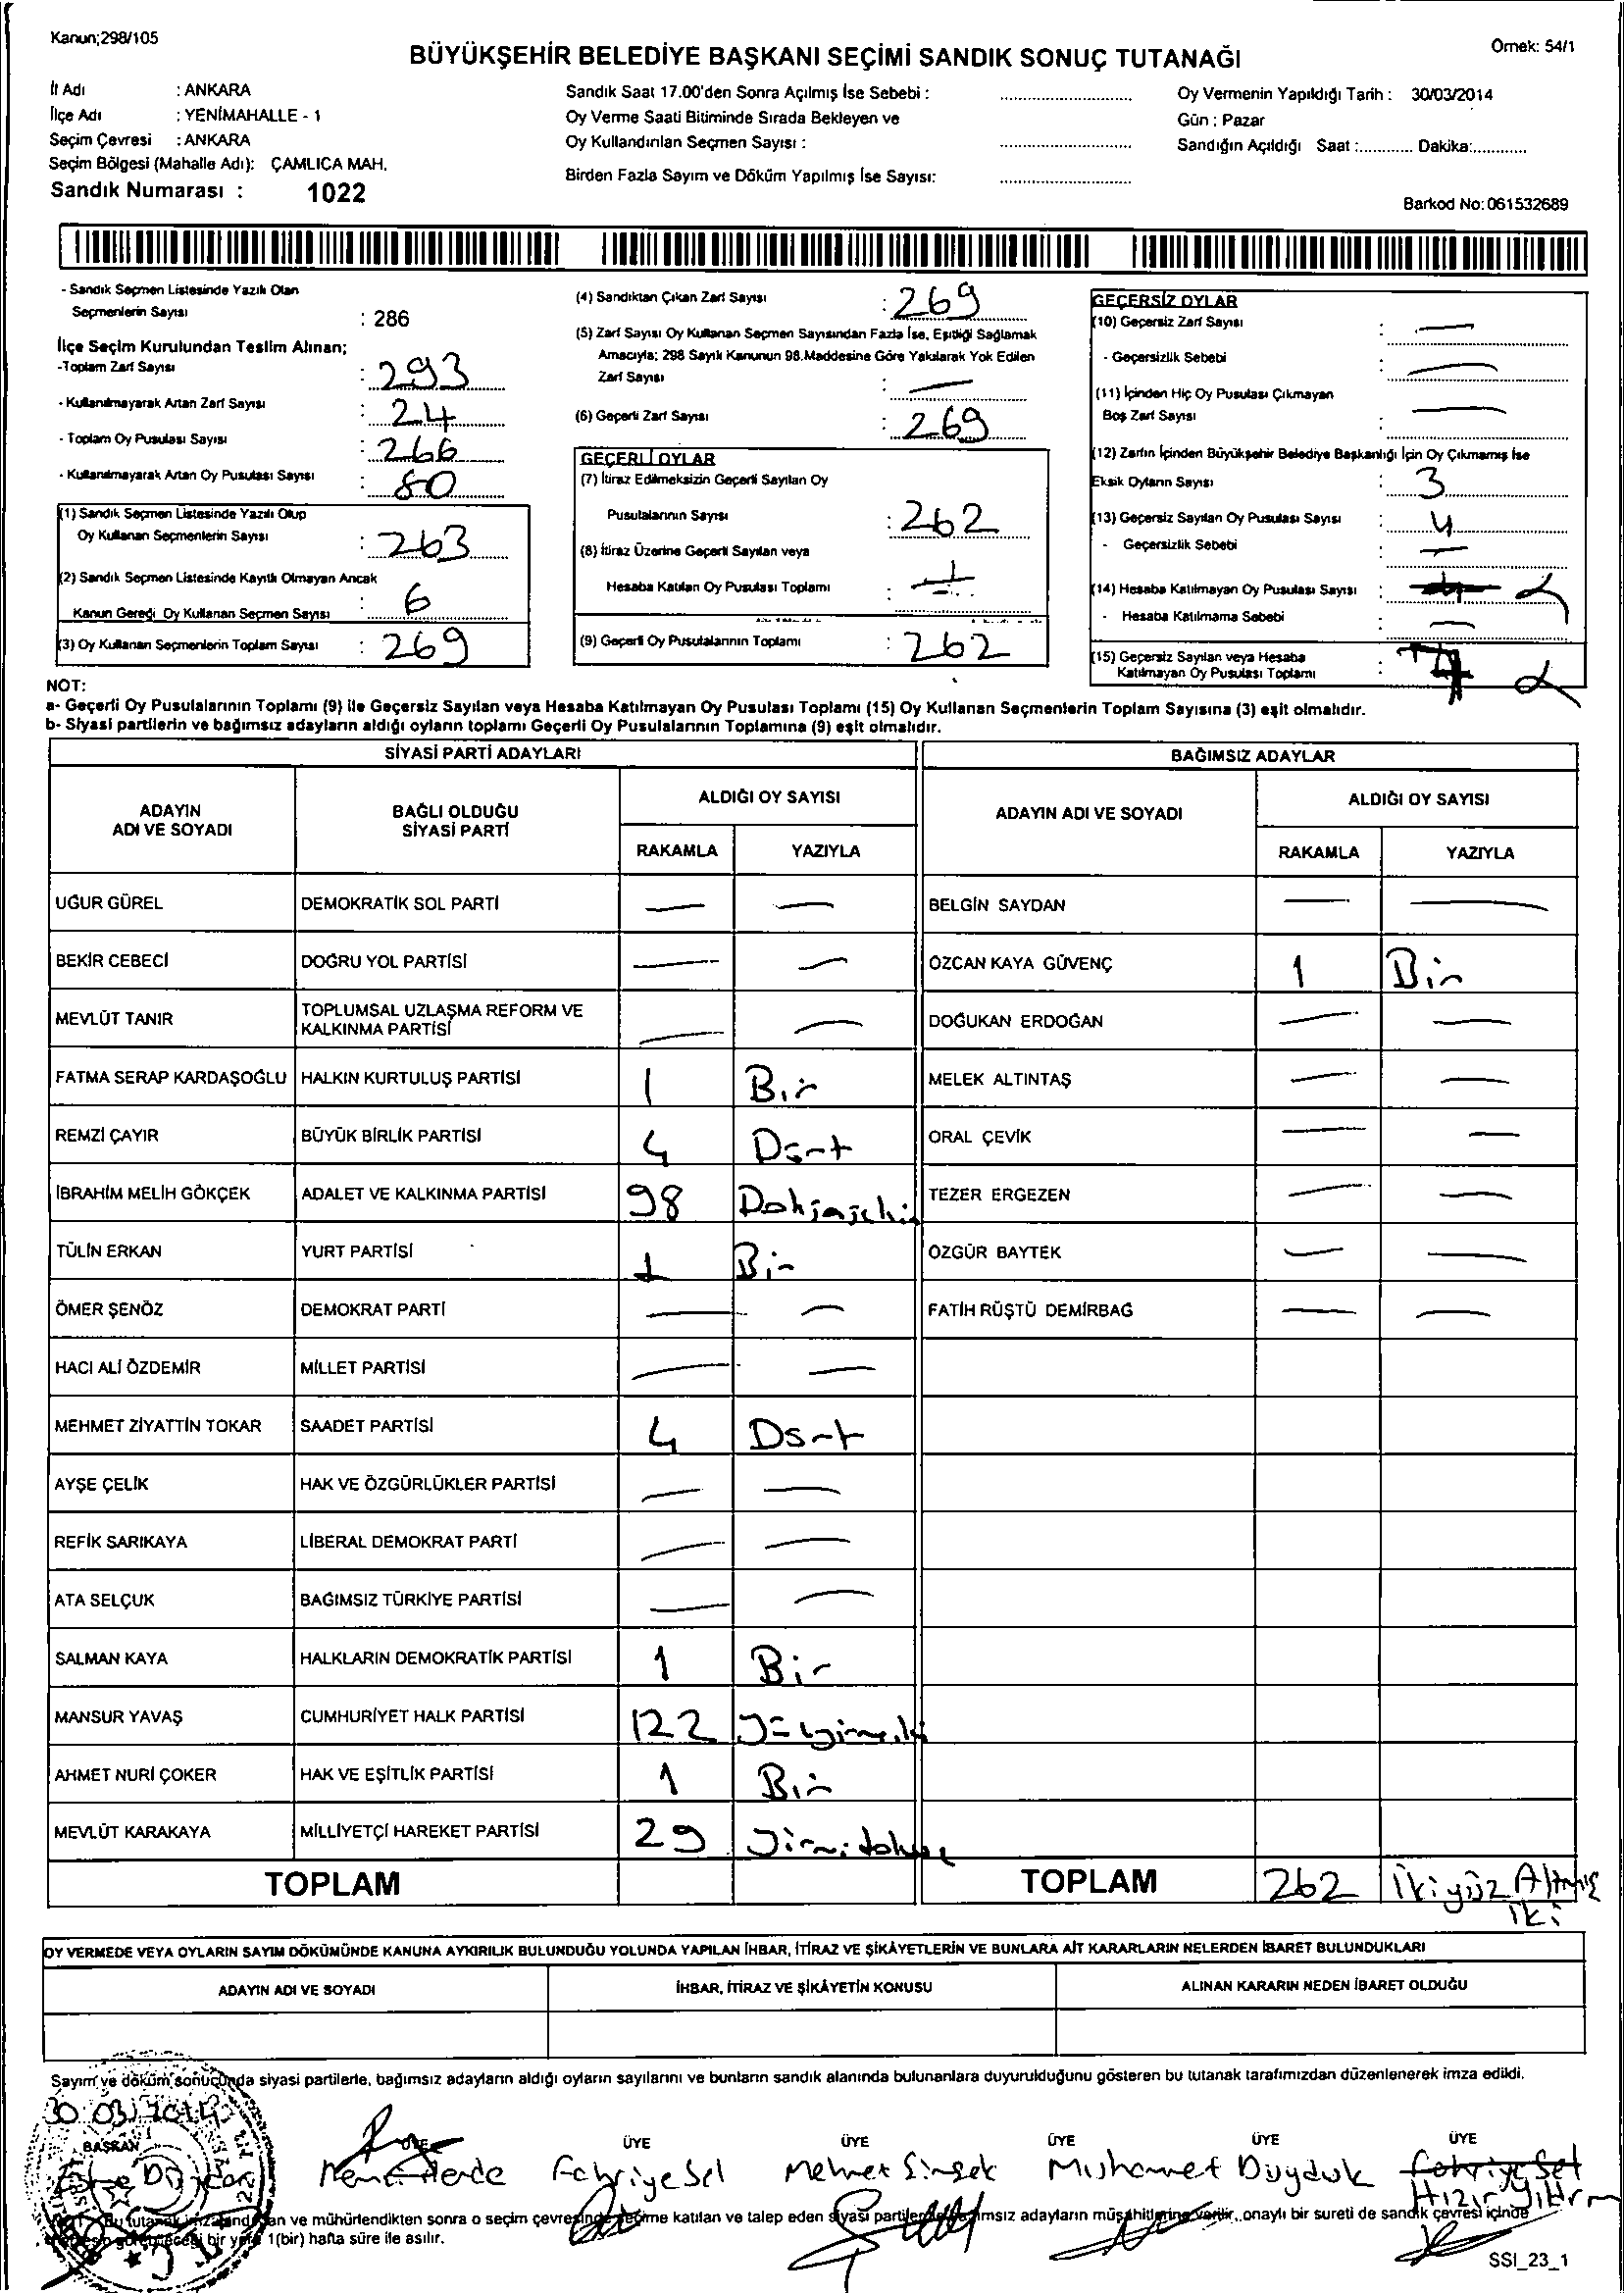 Kanun;298/105
BÜYÜKŞEHİR BELEDİYE BAŞKANI SEÇİMİ SANDIK SONUÇ TUTANAĞI
Örnek: 54/1
İl Adı : ANKARA
İlçe Adı : YENİMAHALLE - 1
Seçim Çevresi : ANKARA
Seçim Bölgesi (Mahalle Adı): ÇAMLICA MAH.
Sandık Numarası : 1022
Sandık Saat 17.00'den Sonra Açılmış İse Sebebi :
Oy Verme Saati Bitiminde Sırada Bekleyen ve
Oy Kullandırılan Seçmen Sayısı :
Birden Fazla Sayım ve Döküm Yapılmış İse Sayısı:
Oy Vermenin Yapıldığı Tarih : 30/03/2014
Gün : Pazar
Sandığın Açıldığı Saat :............ Dakika:............
Barkod No: 061532689
- Sandık Seçmen Listesinde Yazılı Olan
Seçmenlerin Sayısı : 286
İlçe Seçim Kurulundan Teslim Alınan;
-Toplam Zarf Sayısı : 293
- Kullanılmayarak Artan Zarf Sayısı : 24
- Toplam Oy Pusulası Sayısı : 266
- Kullanılmayarak Artan Oy Pusulası Sayısı : 80
(1) Sandık Seçmen Listesinde Yazılı Olup
Oy Kullanan Seçmenlerin Sayısı : 263
(2) Sandık Seçmen Listesinde Kayıtlı Olmayan Ancak
Kanun Gereği Oy Kullanan Seçmen Sayısı : 6
(3) Oy Kullanan Seçmenlerin Toplam Sayısı : 269
(4) Sandıktan Çıkan Zarf Sayısı : 269
(5) Zarf Sayısı Oy Kullanan Seçmen Sayısından Fazla İse, Eşitliği Sağlamak
Amacıyla; 298 Sayılı Kanunun 98.Maddesine Göre Yakılarak Yok Edilen
Zarf Sayısı : —
(6) Geçerli Zarf Sayısı : 269
GEÇERLİ OYLAR
(7) İtiraz Edilmeksizin Geçerli Sayılan Oy
Pusulalarının Sayısı : 262
(8) İtiraz Üzerine Geçerli Sayılan veya
Hesaba Katılan Oy Pusulası Toplamı :
(9) Geçerli Oy Pusulalarının Toplamı : 262
GEÇERSİZ OYLAR
(10) Geçersiz Zarf Sayısı : —
- Geçersizlik Sebebi : —
(11) İçinden Hiç Oy Pusulası Çıkmayan
Boş Zarf Sayısı : —
(12) Zarfın İçinden Büyükşehir Belediye Başkanlığı İçin Oy Çıkmamış İse
Eksik Oyların Sayısı : 3
(13) Geçersiz Sayılan Oy Pusulası Sayısı : 4
- Geçersizlik Sebebi : —
(14) Hesaba Katılmayan Oy Pusulası Sayısı :
- Hesaba Katılmama Sebebi : —
(15) Geçersiz Sayılan veya Hesaba
Katılmayan Oy Pusulası Toplamı :
NOT:
a- Geçerli Oy Pusulalarının Toplamı (9) ile Geçersiz Sayılan veya Hesaba Katılmayan Oy Pusulası Toplamı (15) Oy Kullanan Seçmenlerin Toplam Sayısına (3) eşit olmalıdır.
b- Siyasi partilerin ve bağımsız adayların aldığı oyların toplamı Geçerli Oy Pusulalarının Toplamına (9) eşit olmalıdır.
SİYASİ PARTİ ADAYLARI
ADAYIN ADI VE SOYADI BAĞLI OLDUĞU SİYASİ PARTİ ALDIĞI OY SAYISI RAKAMLA YAZIYLA
UĞUR GÜREL DEMOKRATİK SOL PARTİ — —
BEKİR CEBECİ DOĞRU YOL PARTİSİ — —
MEVLÜT TANIR TOPLUMSAL UZLAŞMA REFORM VE KALKINMA PARTİSİ — —
FATMA SERAP KARDAŞOĞLU HALKIN KURTULUŞ PARTİSİ 1 Bir
REMZİ ÇAYIR BÜYÜK BİRLİK PARTİSİ 4 Dört
İBRAHİM MELİH GÖKÇEK ADALET VE KALKINMA PARTİSİ 98 Doksansekiz
TÜLİN ERKAN YURT PARTİSİ 1 Bir
ÖMER ŞENÖZ DEMOKRAT PARTİ — —
HACI ALİ ÖZDEMİR MİLLET PARTİSİ — —
MEHMET ZİYATTİN TOKAR SAADET PARTİSİ 4 Dört
AYŞE ÇELİK HAK VE ÖZGÜRLÜKLER PARTİSİ — —
REFİK SARIKAYA LİBERAL DEMOKRAT PARTİ — —
ATA SELÇUK BAĞIMSIZ TÜRKİYE PARTİSİ — —
SALMAN KAYA HALKLARIN DEMOKRATİK PARTİSİ 1 Bir
MANSUR YAVAŞ CUMHURİYET HALK PARTİSİ 122 Yüzyirmiiki
AHMET NURİ ÇOKER HAK VE EŞİTLİK PARTİSİ 1 Bir
MEVLÜT KARAKAYA MİLLİYETÇİ HAREKET PARTİSİ 29 Yirmidokuz
TOPLAM
BAĞIMSIZ ADAYLAR
ADAYIN ADI VE SOYADI ALDIĞI OY SAYISI RAKAMLA YAZIYLA
BELGİN SAYDAN — —
ÖZCAN KAYA GÜVENÇ 1 Bir
DOĞUKAN ERDOĞAN — —
MELEK ALTINTAŞ — —
ORAL ÇEVİK — —
TEZER ERGEZEN — —
ÖZGÜR BAYTEK — —
FATİH RÜŞTÜ DEMİRBAĞ — —
TOPLAM 262 İkiyüz Altmış
iki
OY VERMEDE VEYA OYLARIN SAYIM DÖKÜMÜNDE KANUNA AYKIRILIK BULUNDUĞU YOLUNDA YAPILAN İHBAR, İTİRAZ VE ŞİKÂYETLERİN VE BUNLARA AİT KARARLARIN NELERDEN İBARET BULUNDUKLARI
ADAYIN ADI VE SOYADI İHBAR, İTİRAZ VE ŞİKÂYETİN KONUSU ALINAN KARARIN NEDEN İBARET OLDUĞU
Sayım ve döküm sonucunda siyasi partilerle, bağımsız adayların aldığı oyların sayılarını ve bunların sandık alanında bulunanlara duyurulduğunu gösteren bu tutanak tarafımızdan düzenlenerek imza edildi.
30.03.2014
BAŞKAN ÜYE ÜYE ÜYE ÜYE ÜYE ÜYE
Fahriye Sel Mehmet Şimşek Muhammet Duyduk Fahriye Sel
Hızır
Bu tutanak imzalandıktan ve mühürlendikten sonra o seçim çevresinde seçime katılan ve talep eden siyasi partilerle bağımsız adayların müşahitlerine verilir, onaylı bir sureti de sandık çevresi içinde
bir yere 1(bir) hafta süre ile asılır.
SSI_23_1